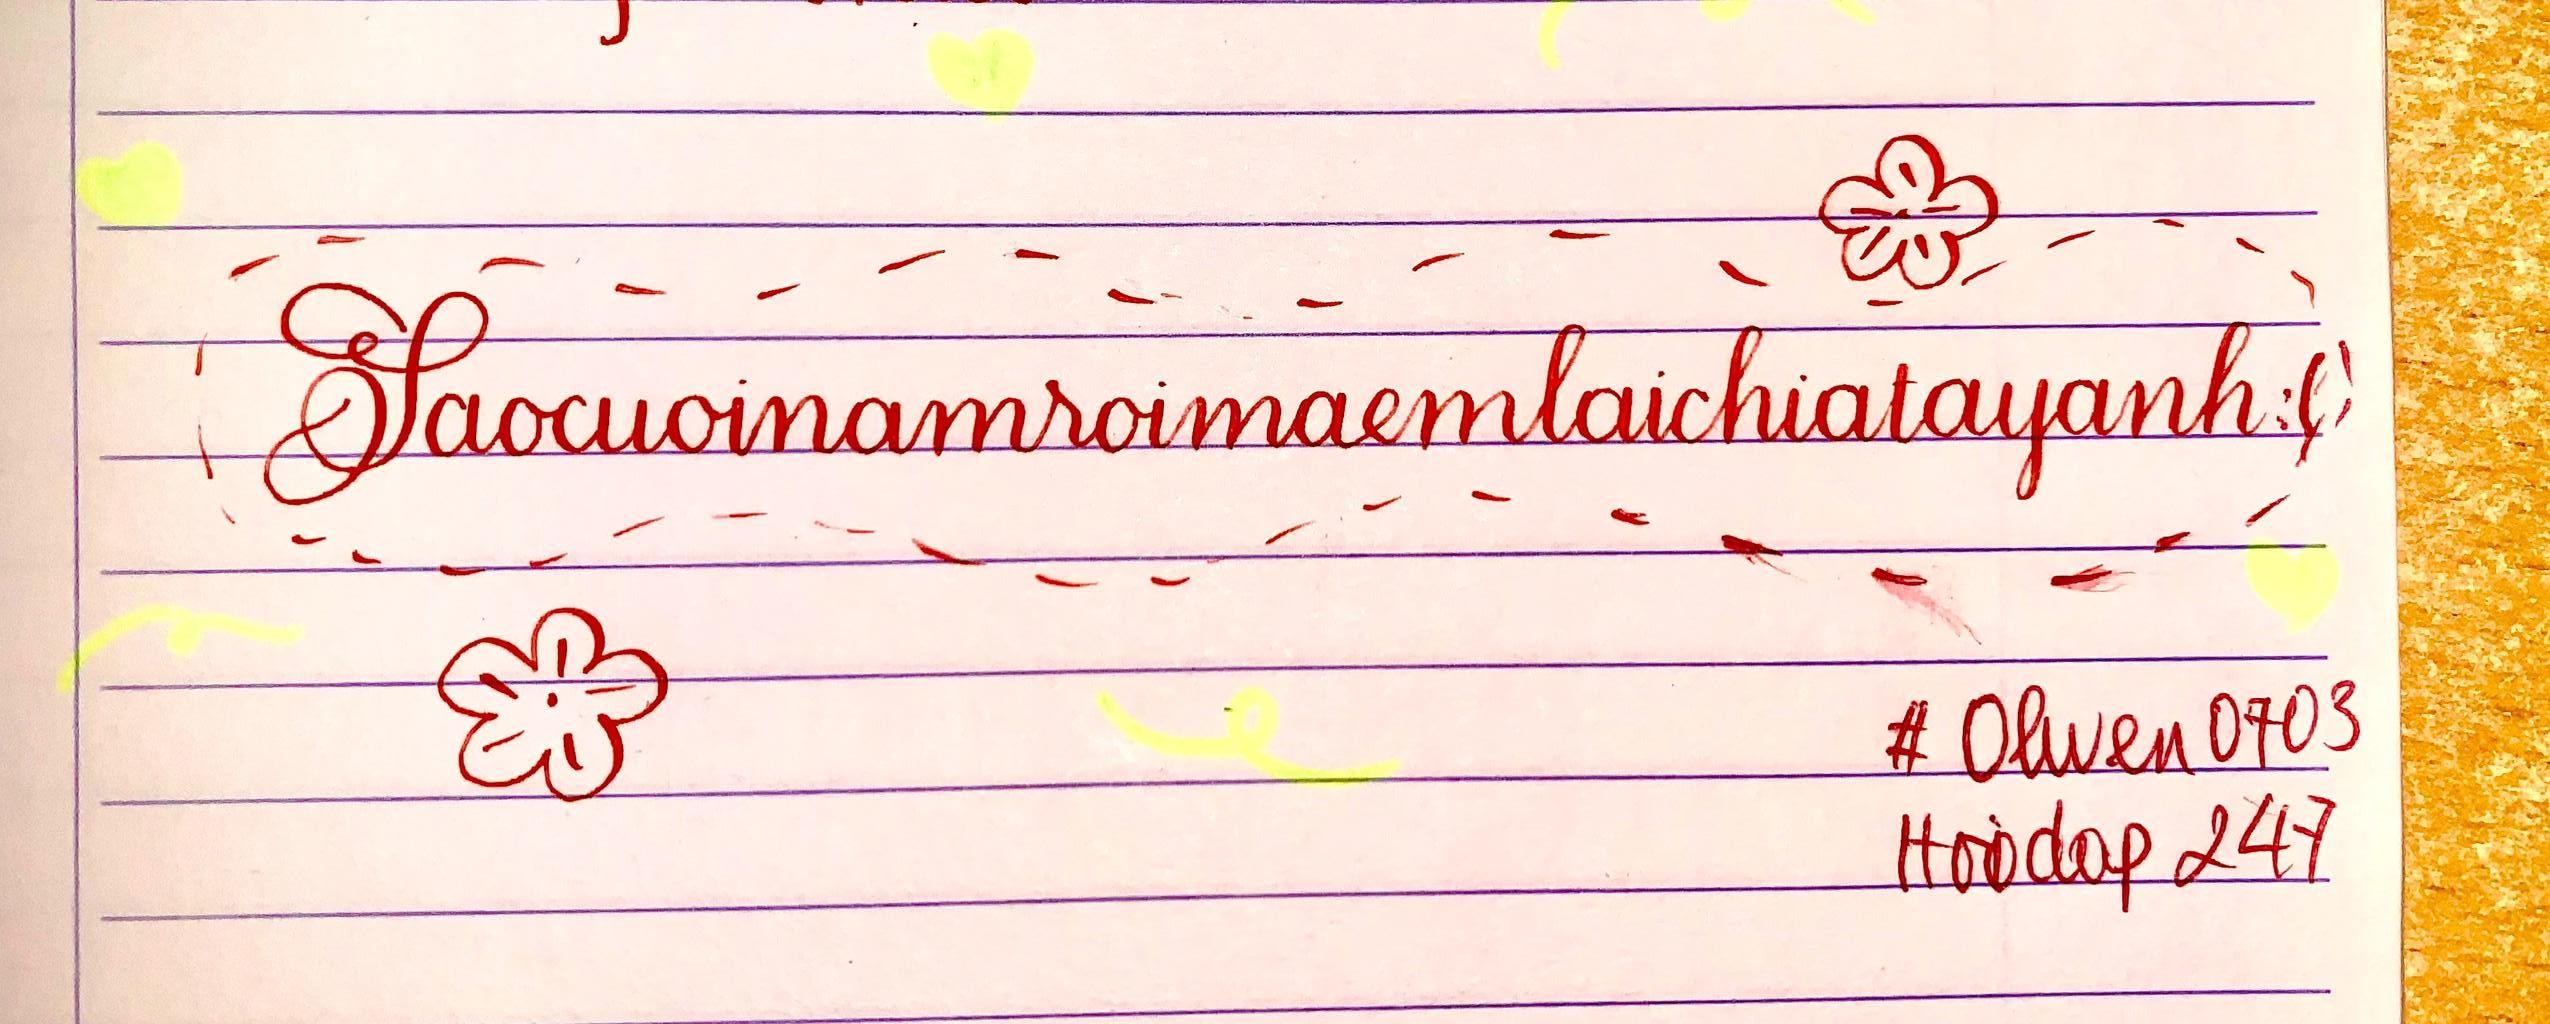 Saocuoinamroimaemlaichiatayanh:(
# Olwen0703
Hoidap 247